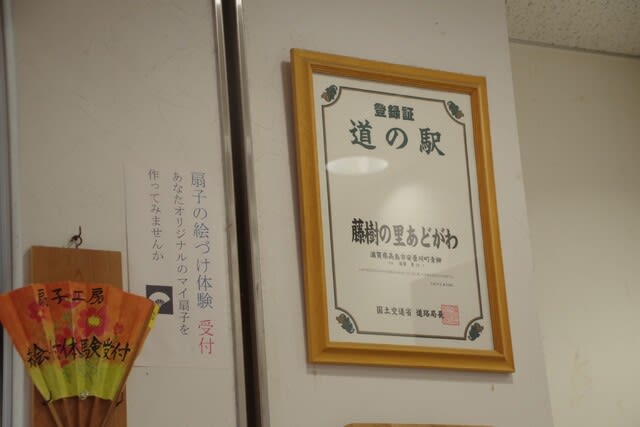 登録証
道の駅
藤樹の里あどがわ
滋賀県高島市安曇川町青柳
国土交通省 道路局長
扇子の絵づけ体験 受付
あなたオリジナルのマイ扇子を
作ってみませんか
扇子工房
絵づけ体験受付